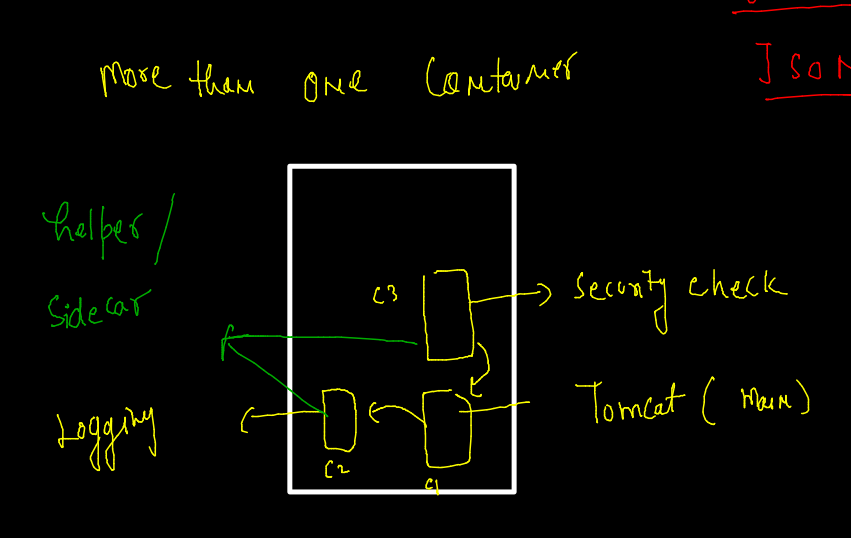 More than one Container
JSON
helper /
Sidecar
C3
Security check
Tomcat ( Main )
Logging
C2
C1